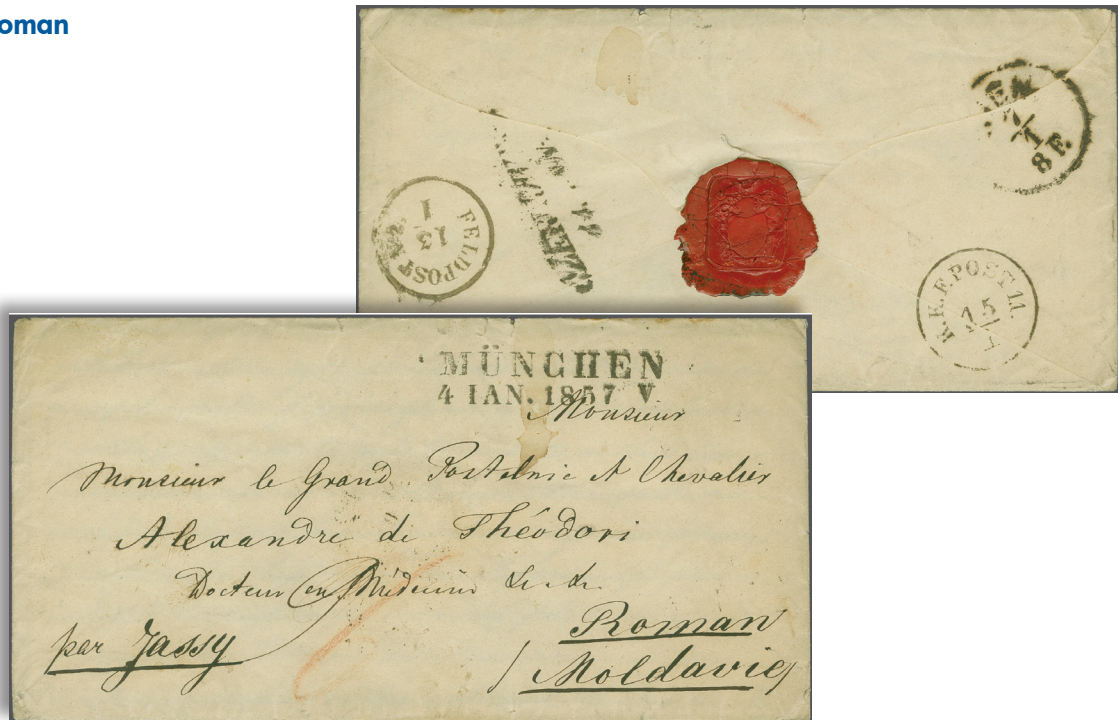 oman
FELDPOST
13
I
8 F.
K.K.F.POST 11.
15
I
MÜNCHEN
4 IAN. 1857 V.
Monsieur
Monsieur le Grand Postelnic et Chevalier
Alexandre de Théodori
Docteur en Médecine &. &.
par Jassy
Roman
Moldavie